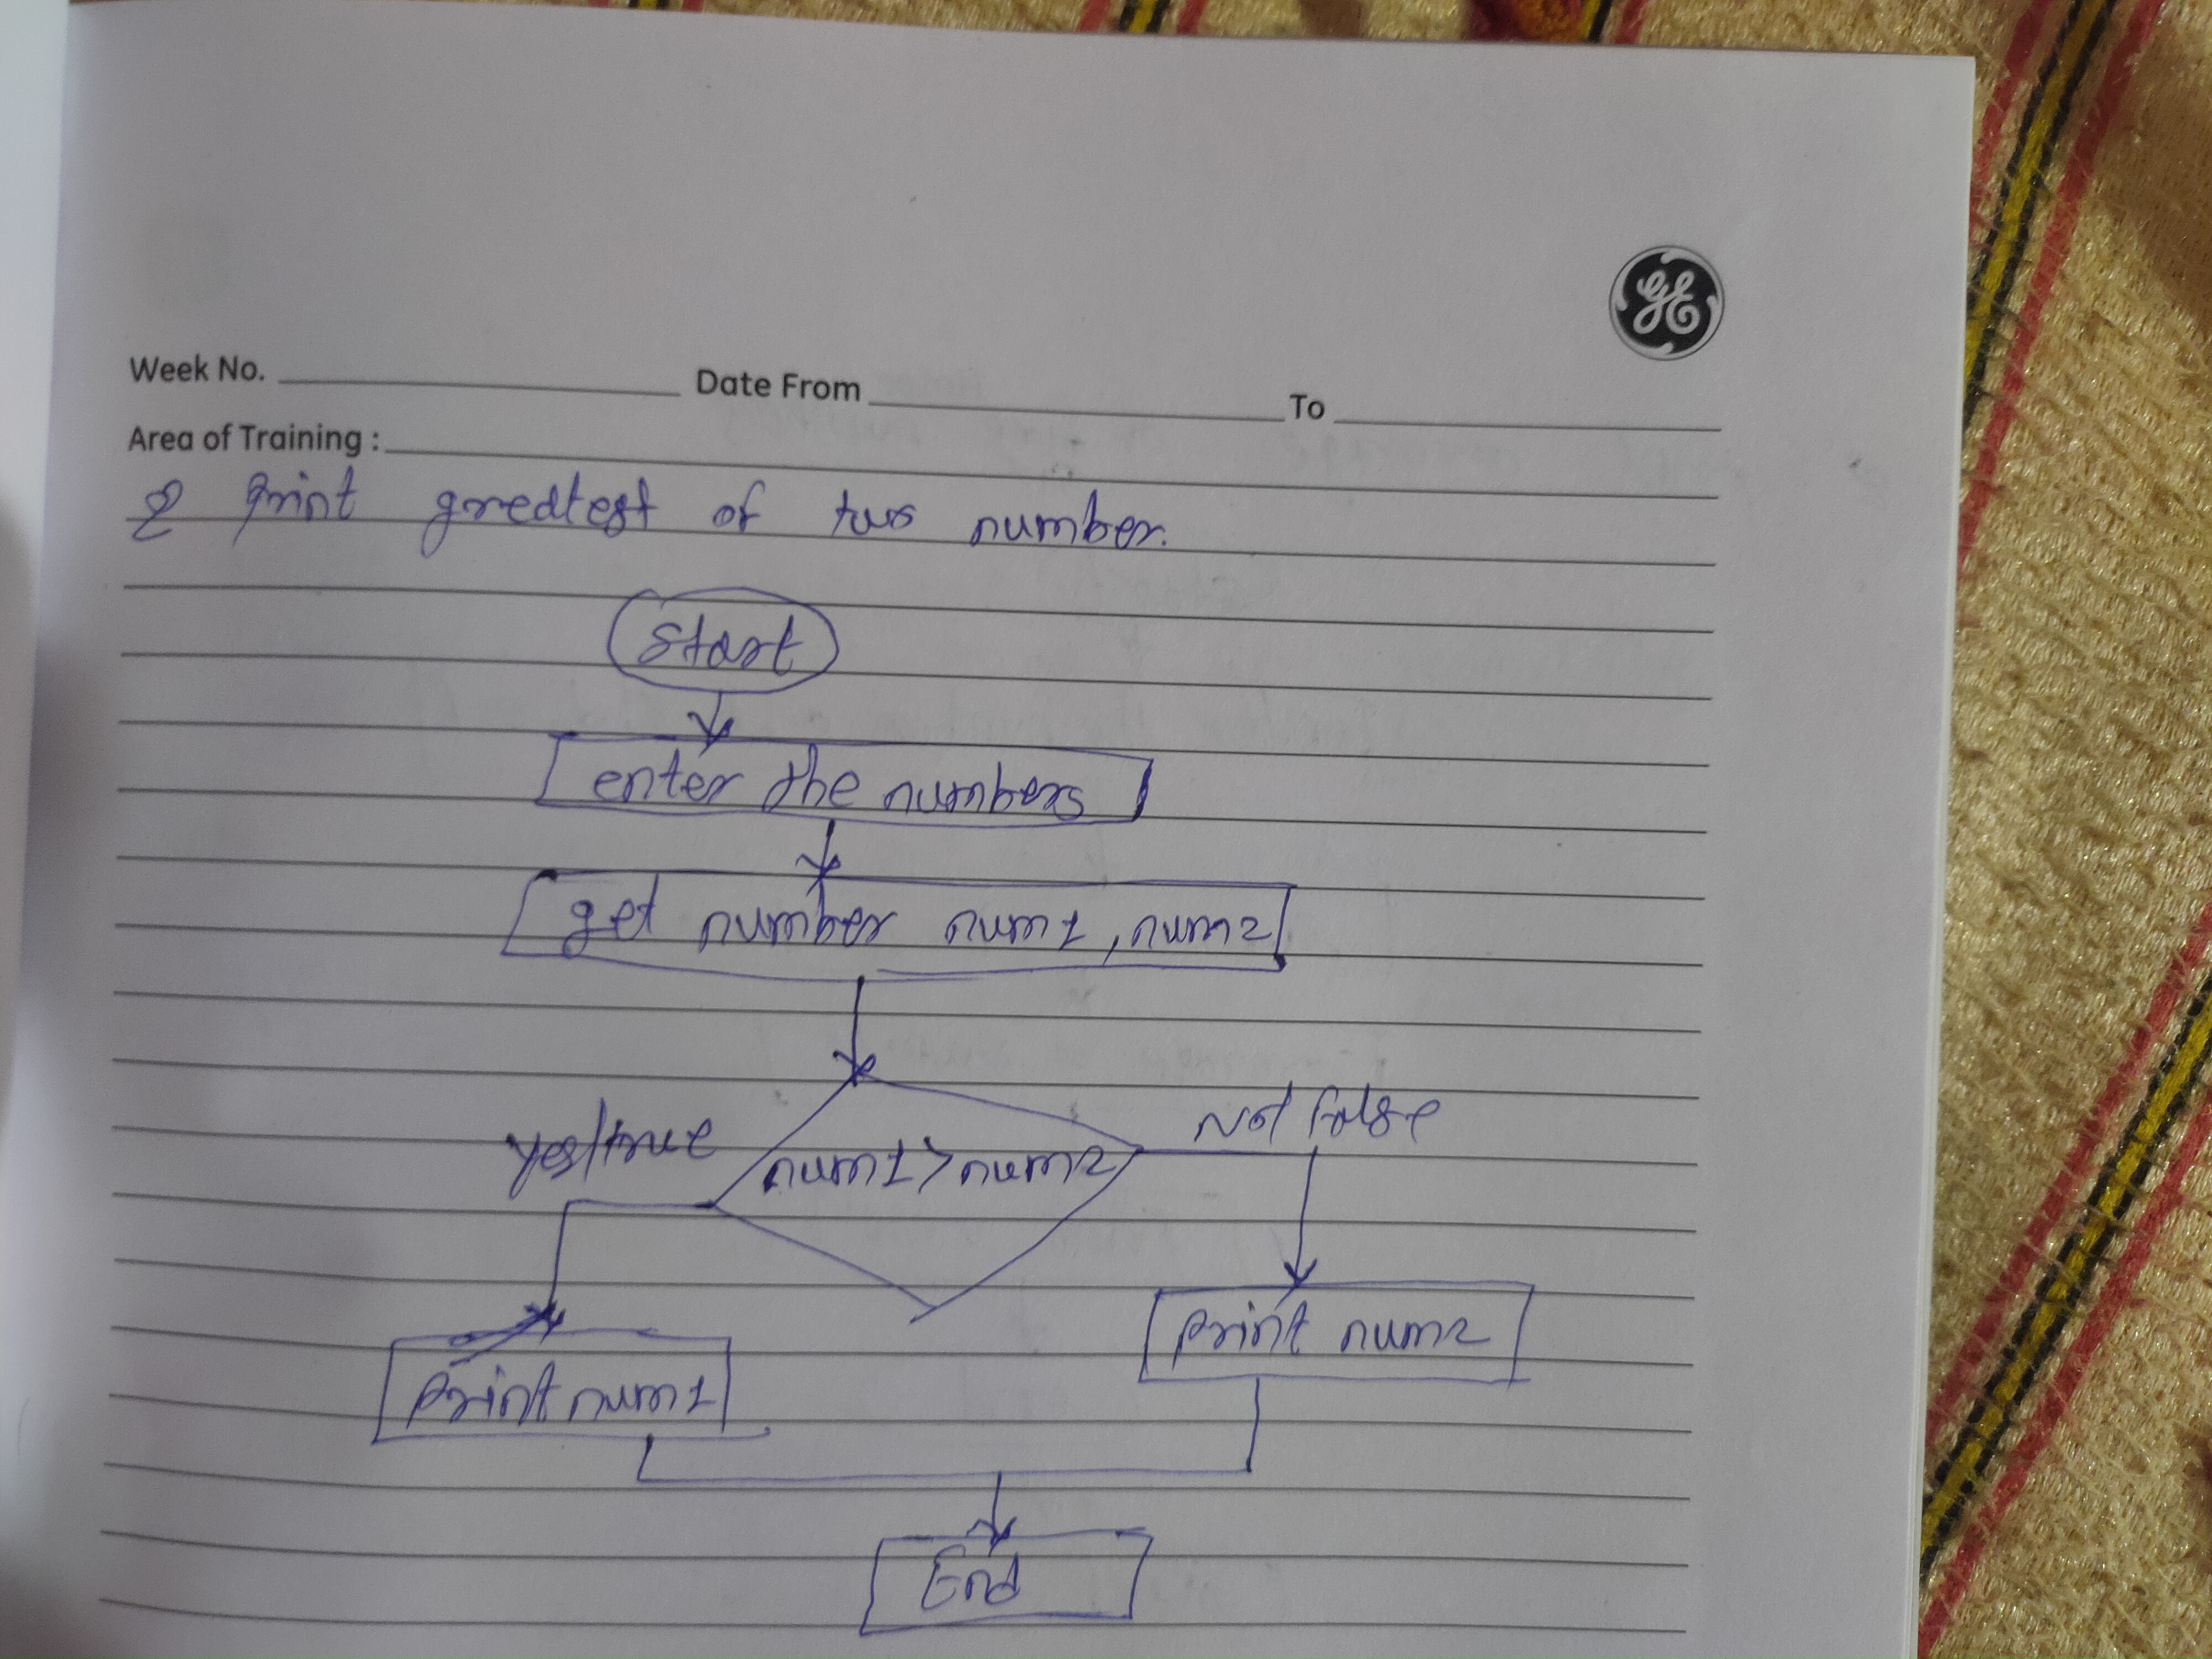 GE
Week No. Date From To
Area of Training :
2 Print greatest of two number.
Start
enter the numbers
get number num1, num2
Yes/true
num1>num2
No/ false
print num2
print num1
End